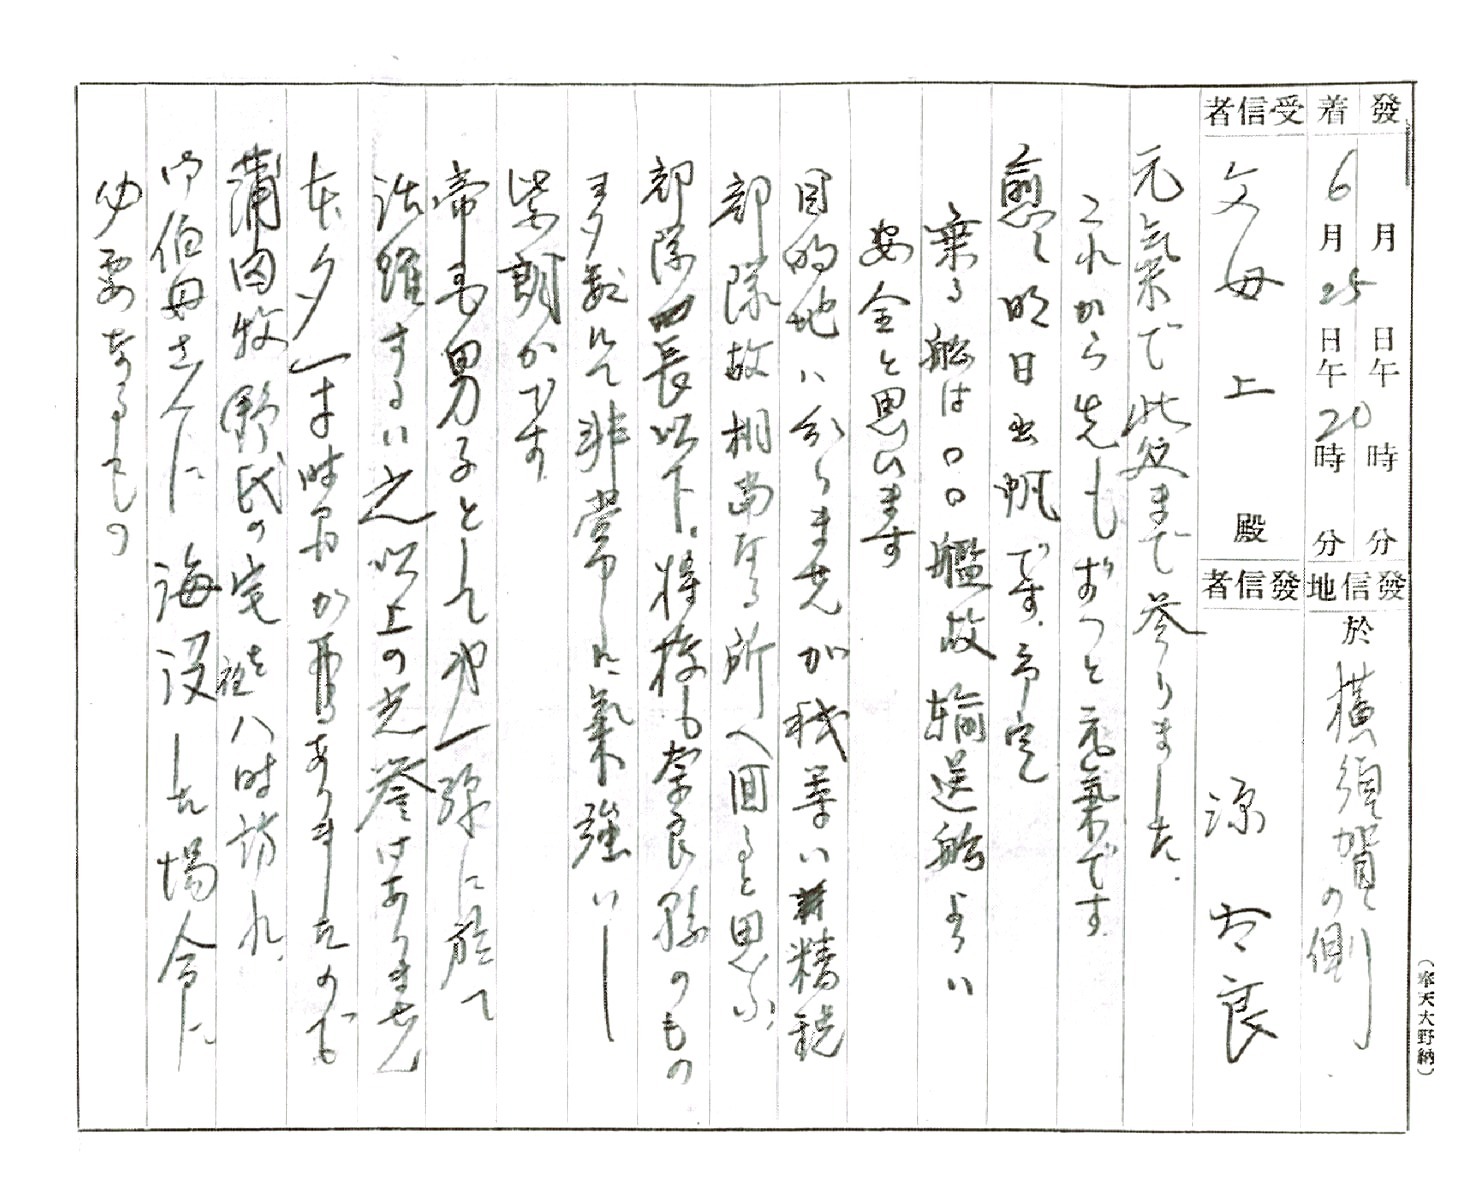 發 月 日午 時 分
着 6月25日午20時 分
發信地 於 横須賀の側
受信者 父母上 殿
發信者 源太良
元氣で此処まで参りました.
これから先もずっと元氣です
愈々明日出帆です.予定
乗る船は〇〇艦故輸送船よりハ
安全と思ひます
目的地ハ分りませんが我等ハ精鋭
部隊故相当なる所へ回ると思ふ.
部隊長以下.将校も奈良縣のもの
多数にて非常に氣強いし
柴朗かです
帝国男子として第一線に於て
活躍するハ之以上の光誉はありません
本夕一寸時間が有りましたので
蒲田牧野氏の宅を夜八時訪れ.
御伯母さんに 海没した場合に
必要なるもの
(奉天大野納)